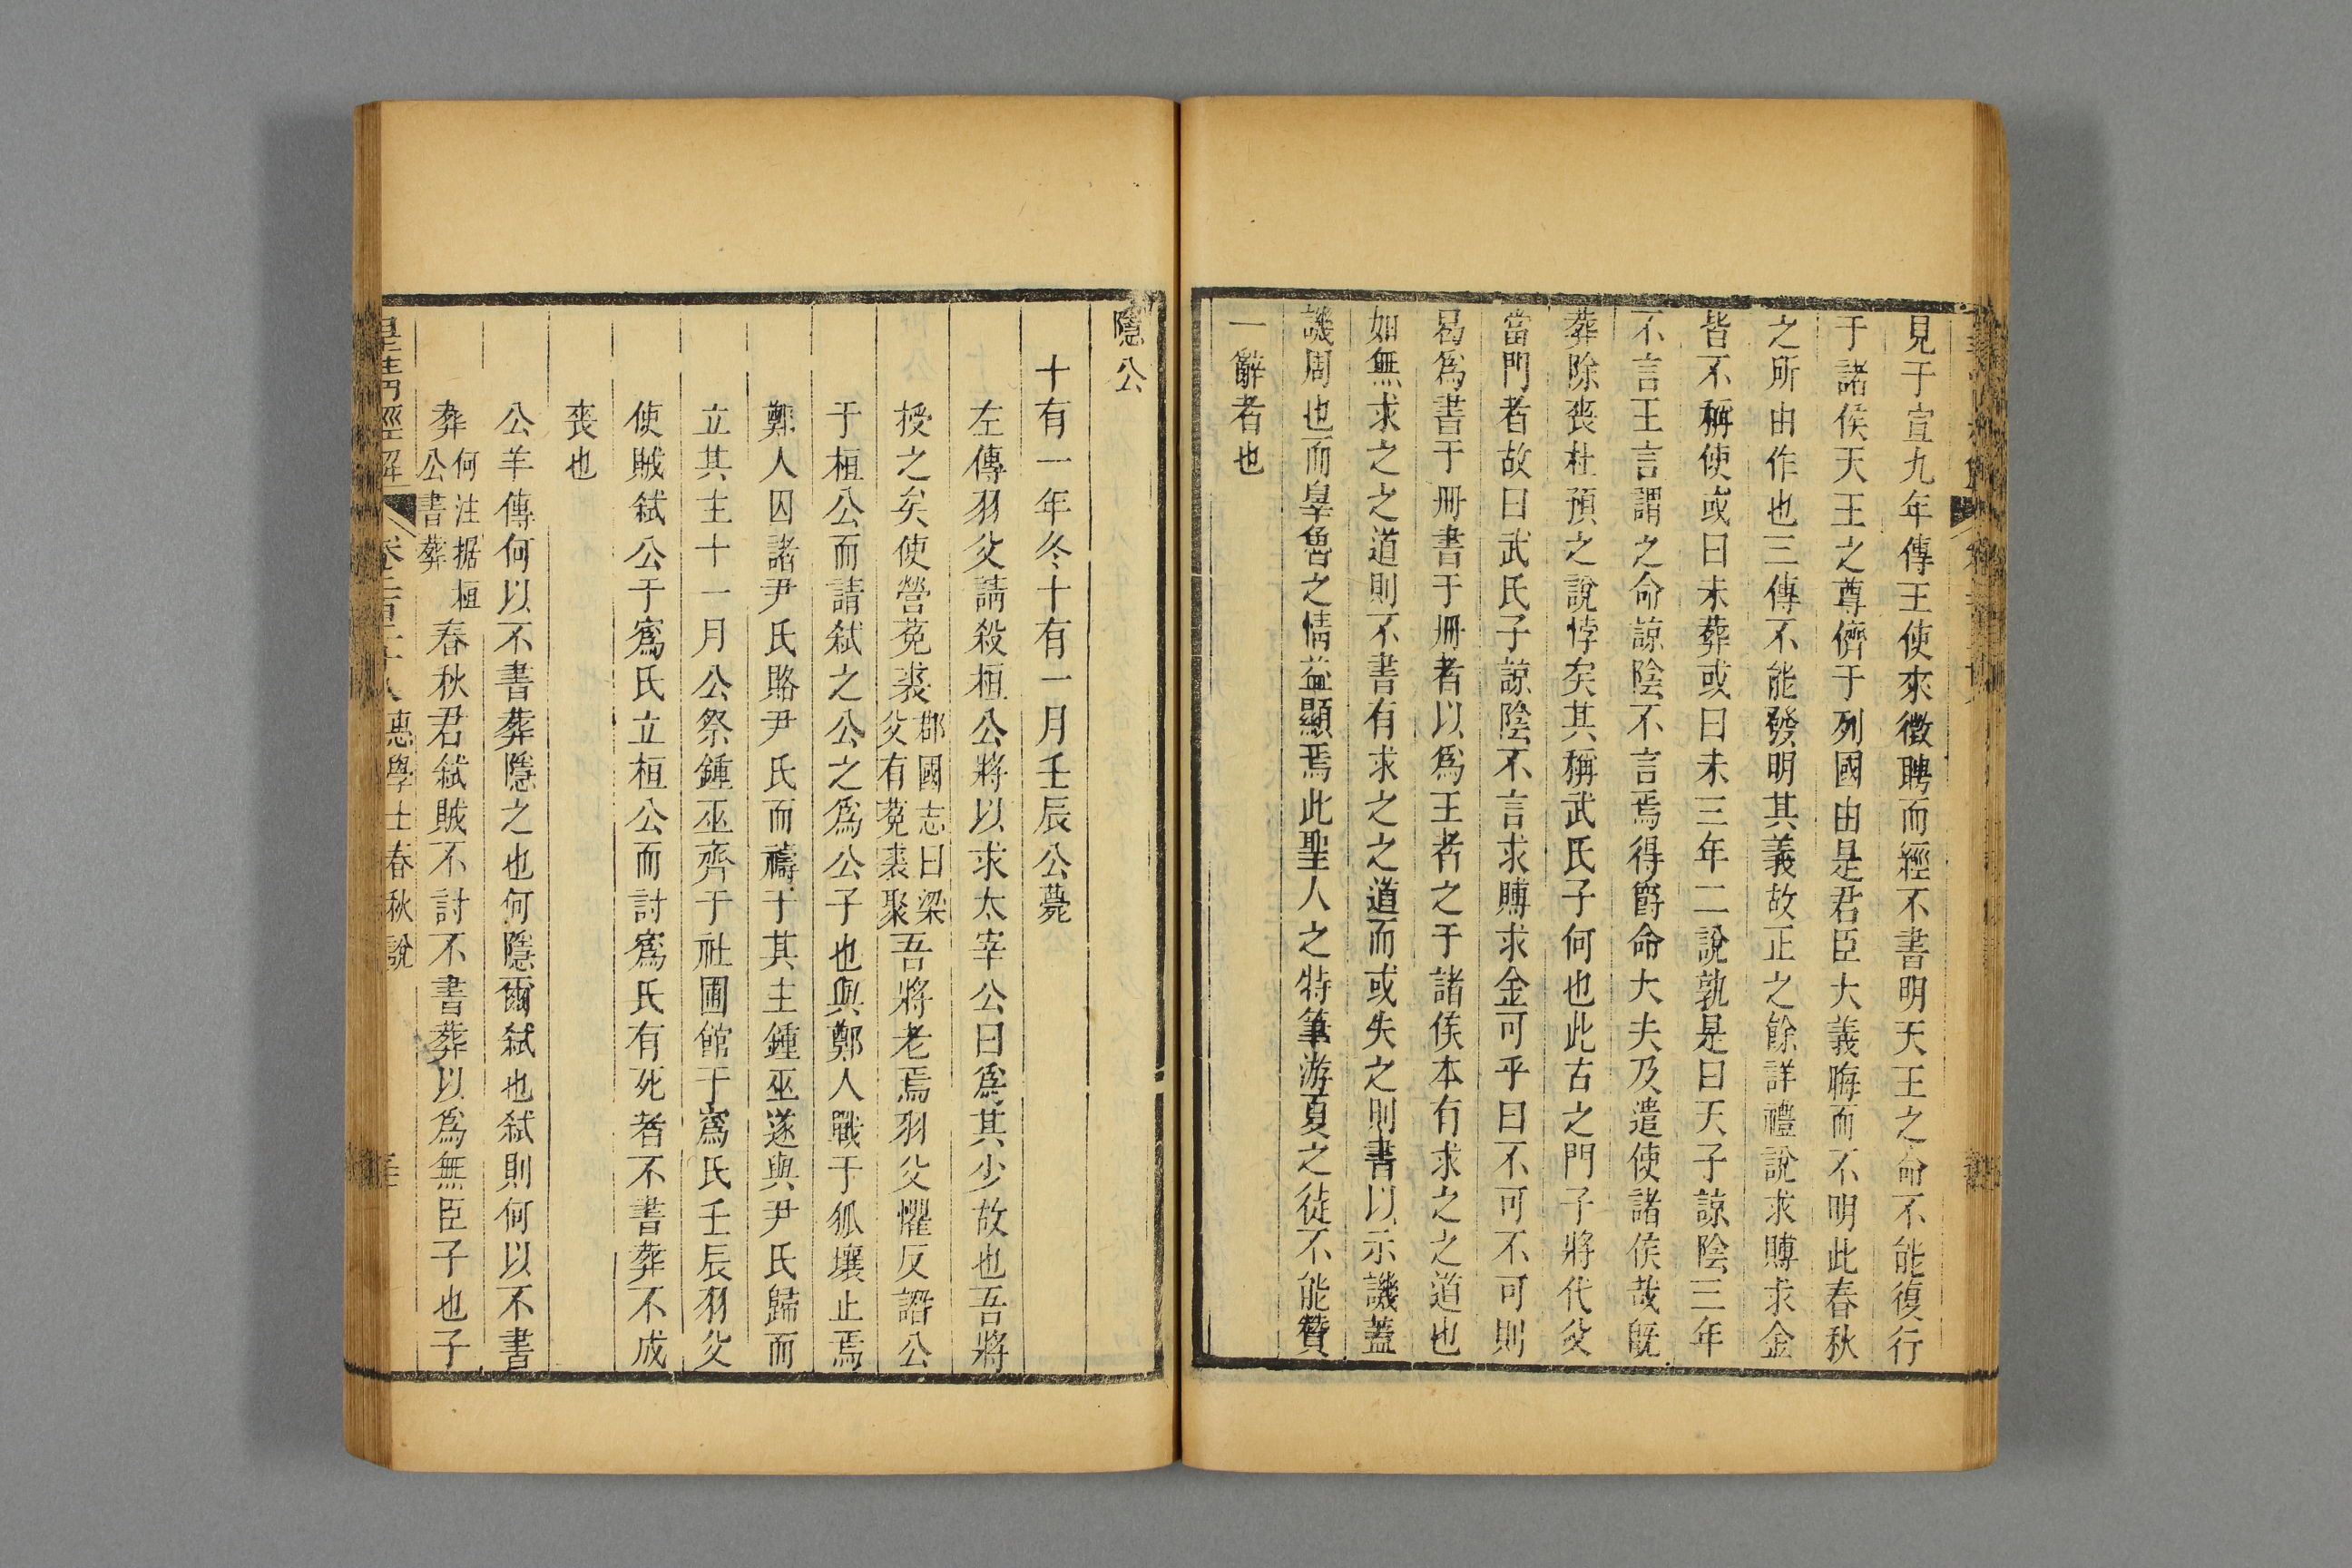 見于宣九年傳王使來徵聘而經不書明天王之命不能復行
于諸侯天王之尊儕于列國由是君臣大義晦而不明此春秋
之所由作也三傳不能發明其義故正之餘詳禮說求賻求金
皆不稱使或曰未葬或曰未三年二說孰是曰天子諒陰三年
不言王言謂之命諒陰不言焉得爵命大夫乃遣使諸侯哉旣
葬除喪杜預之說悖矣其稱武氏子何也此古之門子將代父
當門者故曰武氏子諒陰不言求賻求金可乎曰不可不可則
曷爲書于冊書于冊者以爲王者之于諸侯本有求之之道也
如無求之之道則不書有求之之道而或失之則書以示譏蓋
譏周也而辠魯之情益顯焉此聖人之特筆游夏之徒不能贊
一辭者也
隱公
十有一年冬十有一月壬辰公薨
左傳羽父請殺桓公將以求太宰公曰爲其少故也吾將
授之矣使營菟裘郡國志曰梁父有菟裘聚吾將老焉羽父懼反譖公
于桓公而請弑之公之爲公子也與鄭人戰于狐壤止焉
鄭人囚諸尹氏賂尹氏而禱于其主鍾巫遂與尹氏歸而
立其主十一月公祭鍾巫齊于社圃館于寪氏壬辰羽父
使賊弑公于寪氏立桓公而討寪氏有死者不書葬不成
喪也
公羊傳何以不書葬隱之也何隱爾弑也弑則何以不書
葬何注据桓公書葬春秋君弑賊不討不書葬以爲無臣子也子
皇淸經解 卷二百二十八 惠學士春秋說